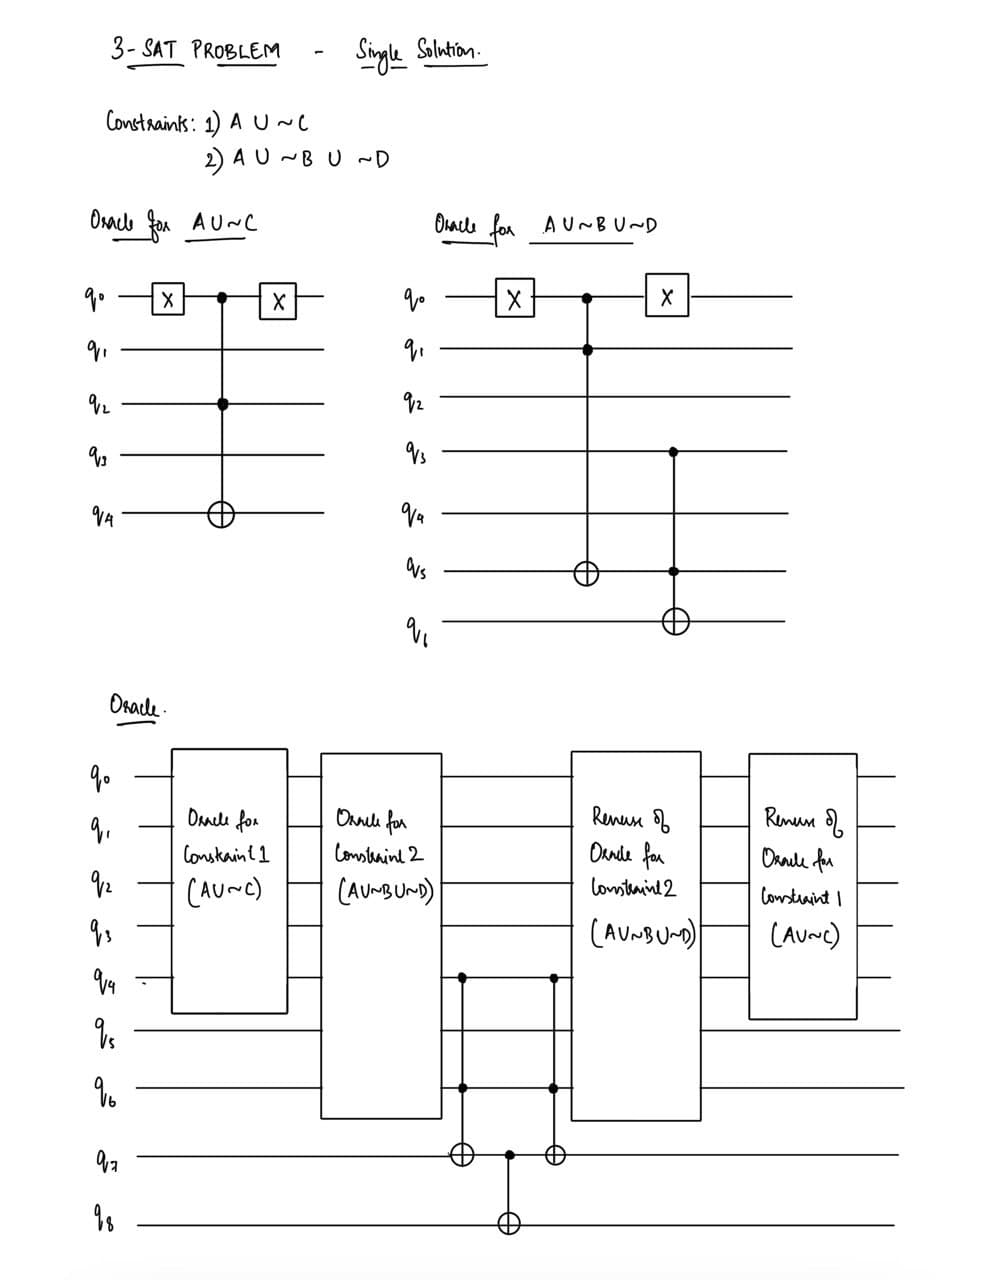 3-SAT PROBLEM - Single Solution.
Constraints: 1) A U ~C
2) A U ~B U ~D
Oracle for A U ~C
Oracle for A U ~B U ~D
q0 X X
q1
q2
q3
q4
q0 X X
q1
q2
q3
q4
q5
q6
Oracle.
q0
q1
q2
q3
q4
q5
q6
q7
q8
Oracle for
Constraint 1
(A U ~C)
Oracle for
Constraint 2
(A U ~B U ~D)
Reverse of
Oracle for
Constraint 2
(A U ~B U ~D)
Reverse of
Oracle for
Constraint 1
(A U ~C)